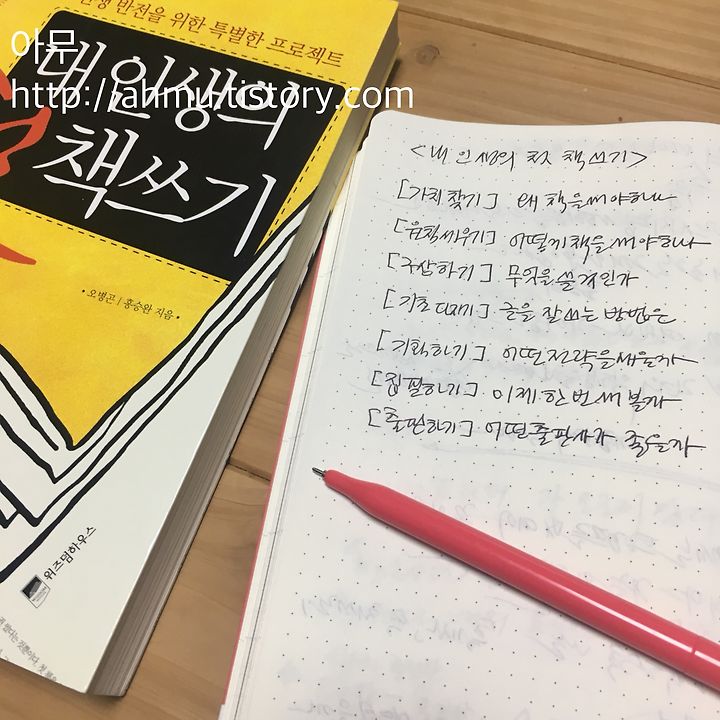 아무
http://ahmu.tistory.com
반전을 위한 특별한 프로젝트
내 인생의
첫
책쓰기
• 오병곤 | 홍승완 지음 •
위즈덤하우스
<내 인생의 첫 책쓰기>
[가치찾기] 왜 책을 써야하나
[원칙세우기] 어떻게 책을 써야하나
[구상하기] 무엇을 쓸 것인가
[기초다지기] 글을 잘 쓰는 방법은
[기획하기] 어떤 전략을 세울까
[집필하기] 이제 한번 써 볼까
[출판하기] 어떤 출판사가 좋을까